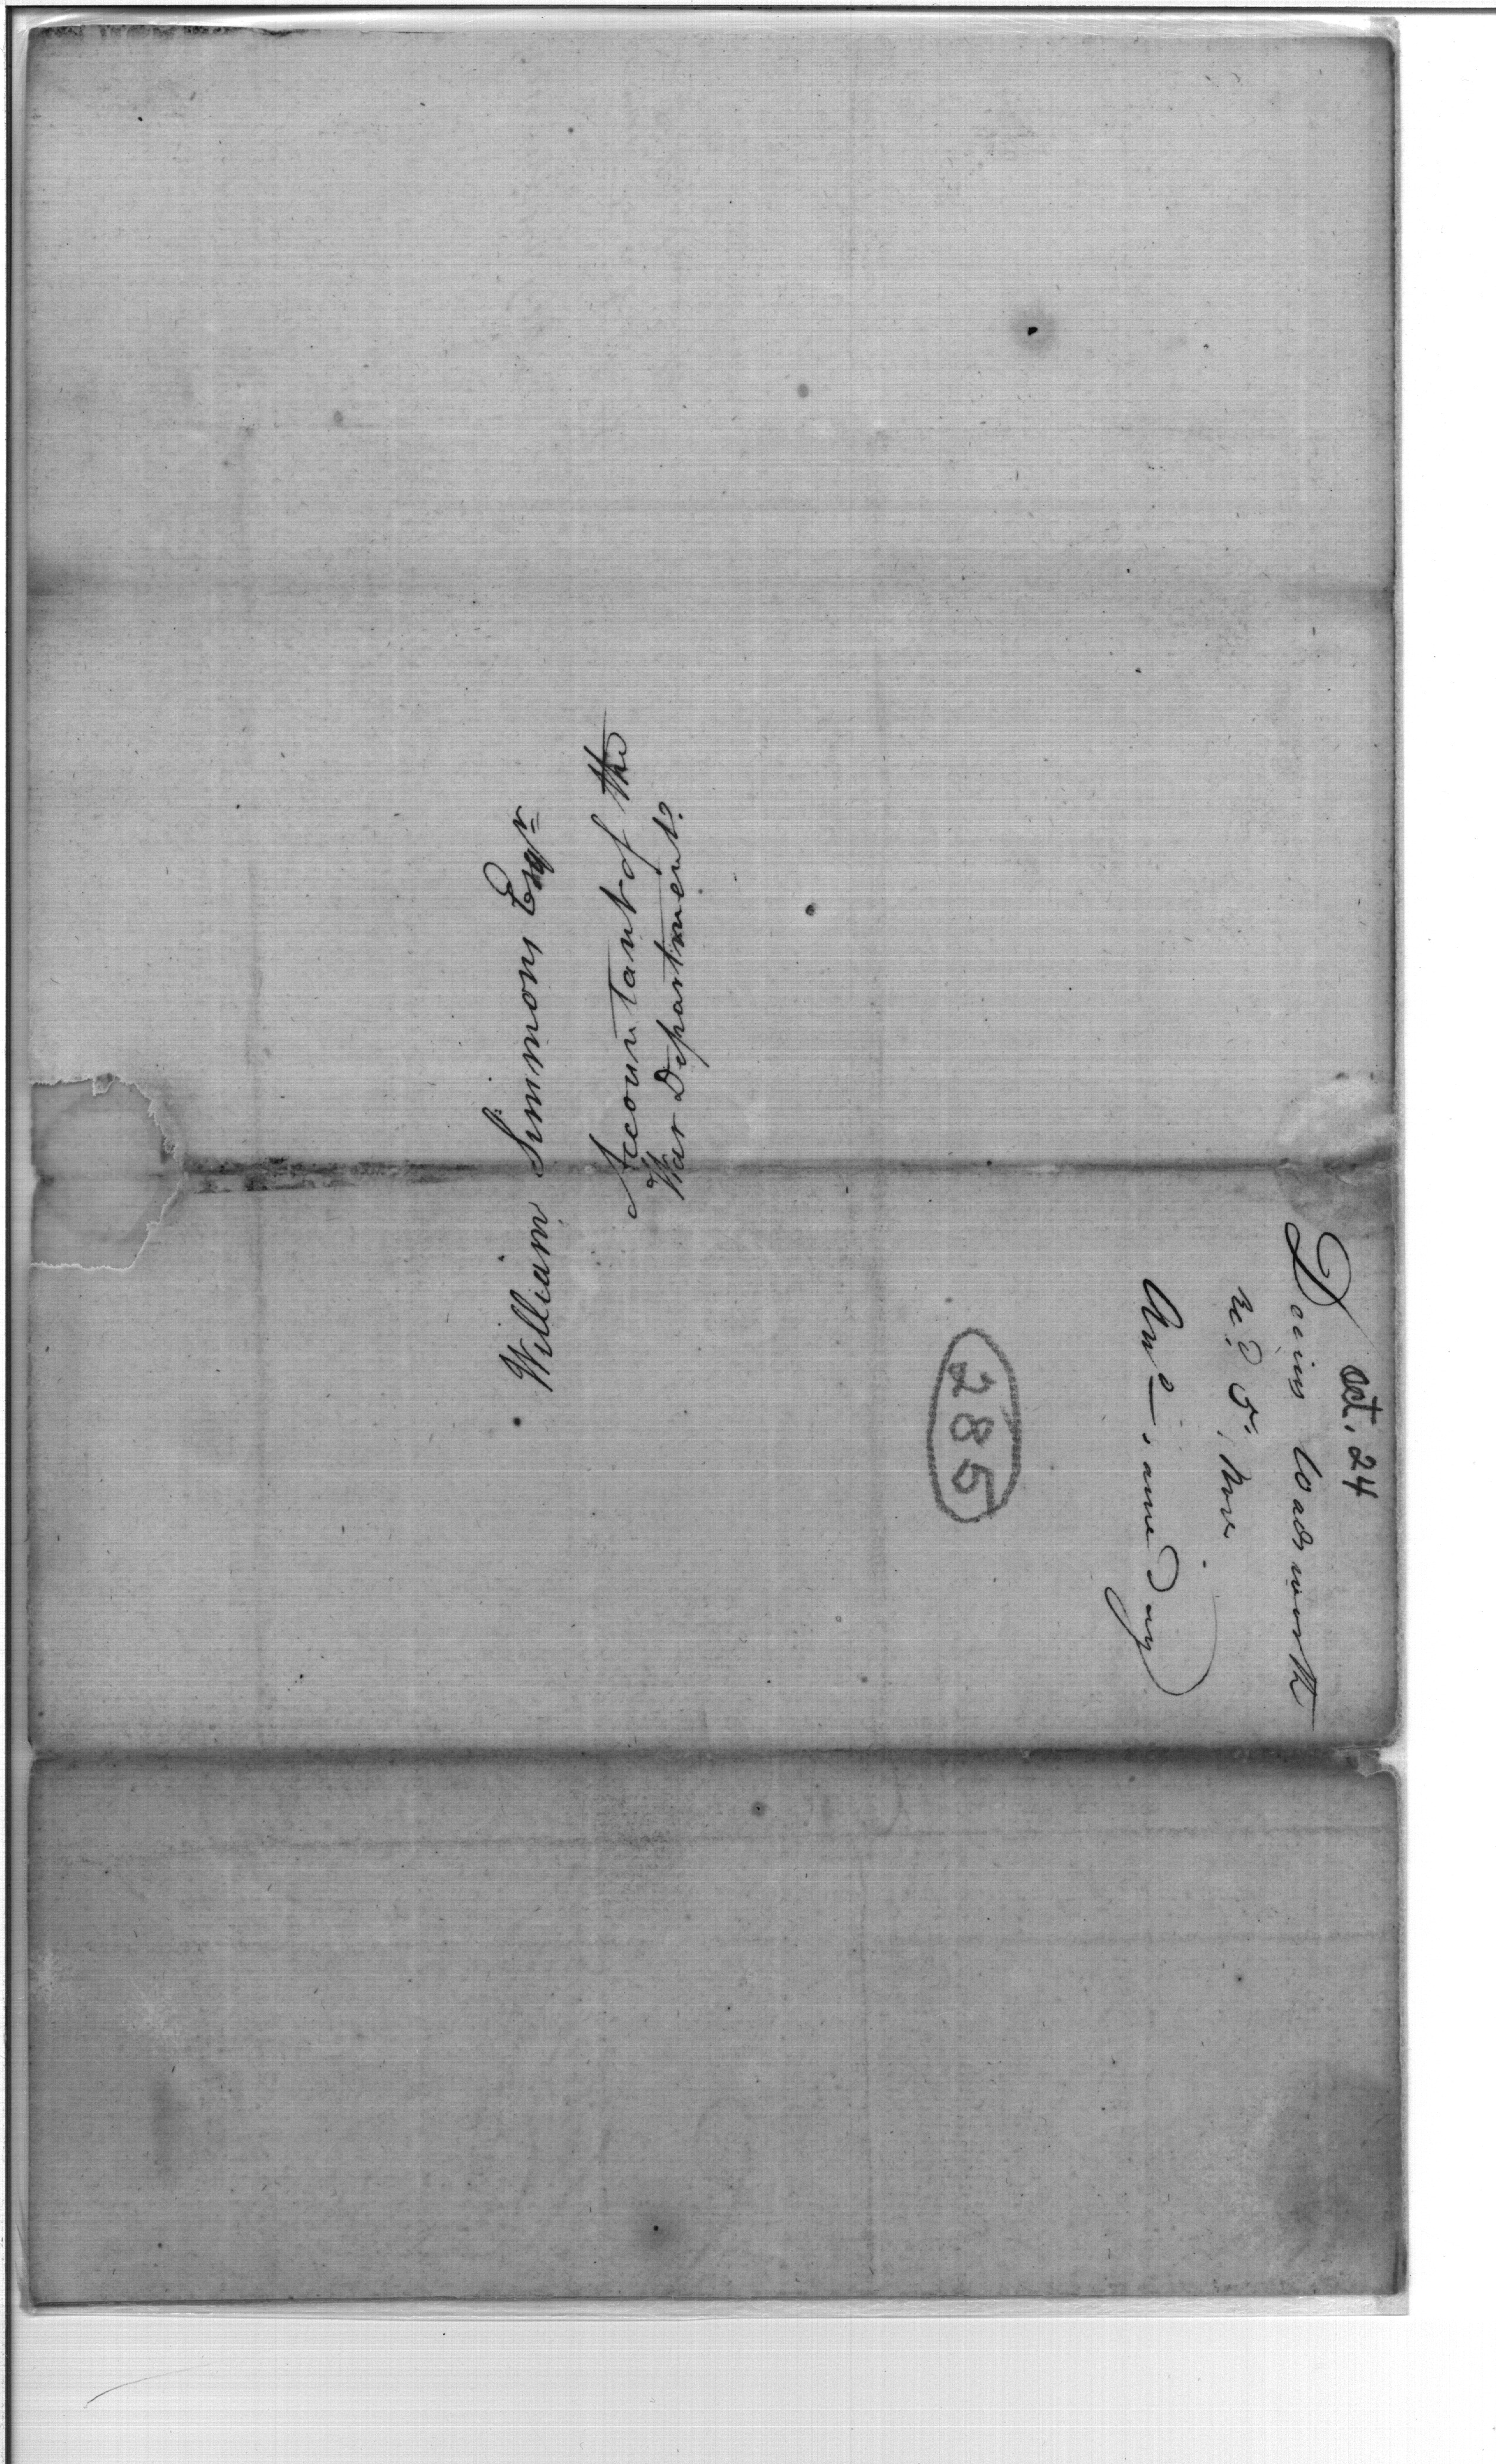 William Simmons Esqr
Accountant of the
War Department.
Oct. 24
Decius Wadsworth
recd 5, Nov.
Answd same Day
285